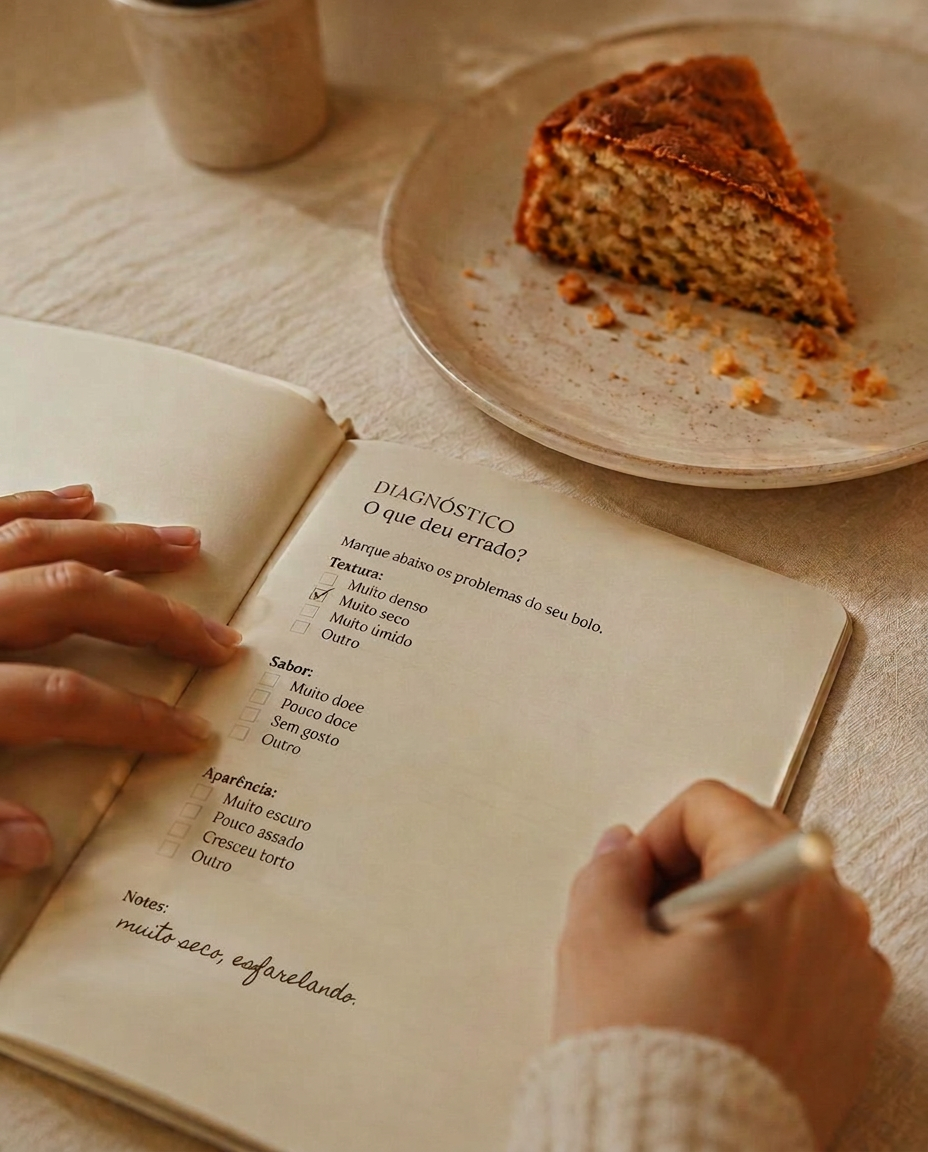 DIAGNÓSTICO
O que deu errado?
Marque abaixo os problemas do seu bolo.
Textura:
Muito denso
Muito seco
Muito úmido
Outro
Sabor:
Muito doee
Pouco doce
Sem gosto
Outro
Aparência:
Muito escuro
Pouco assado
Cresceu torto
Outro
Notes:
muito seco, esfarelando.